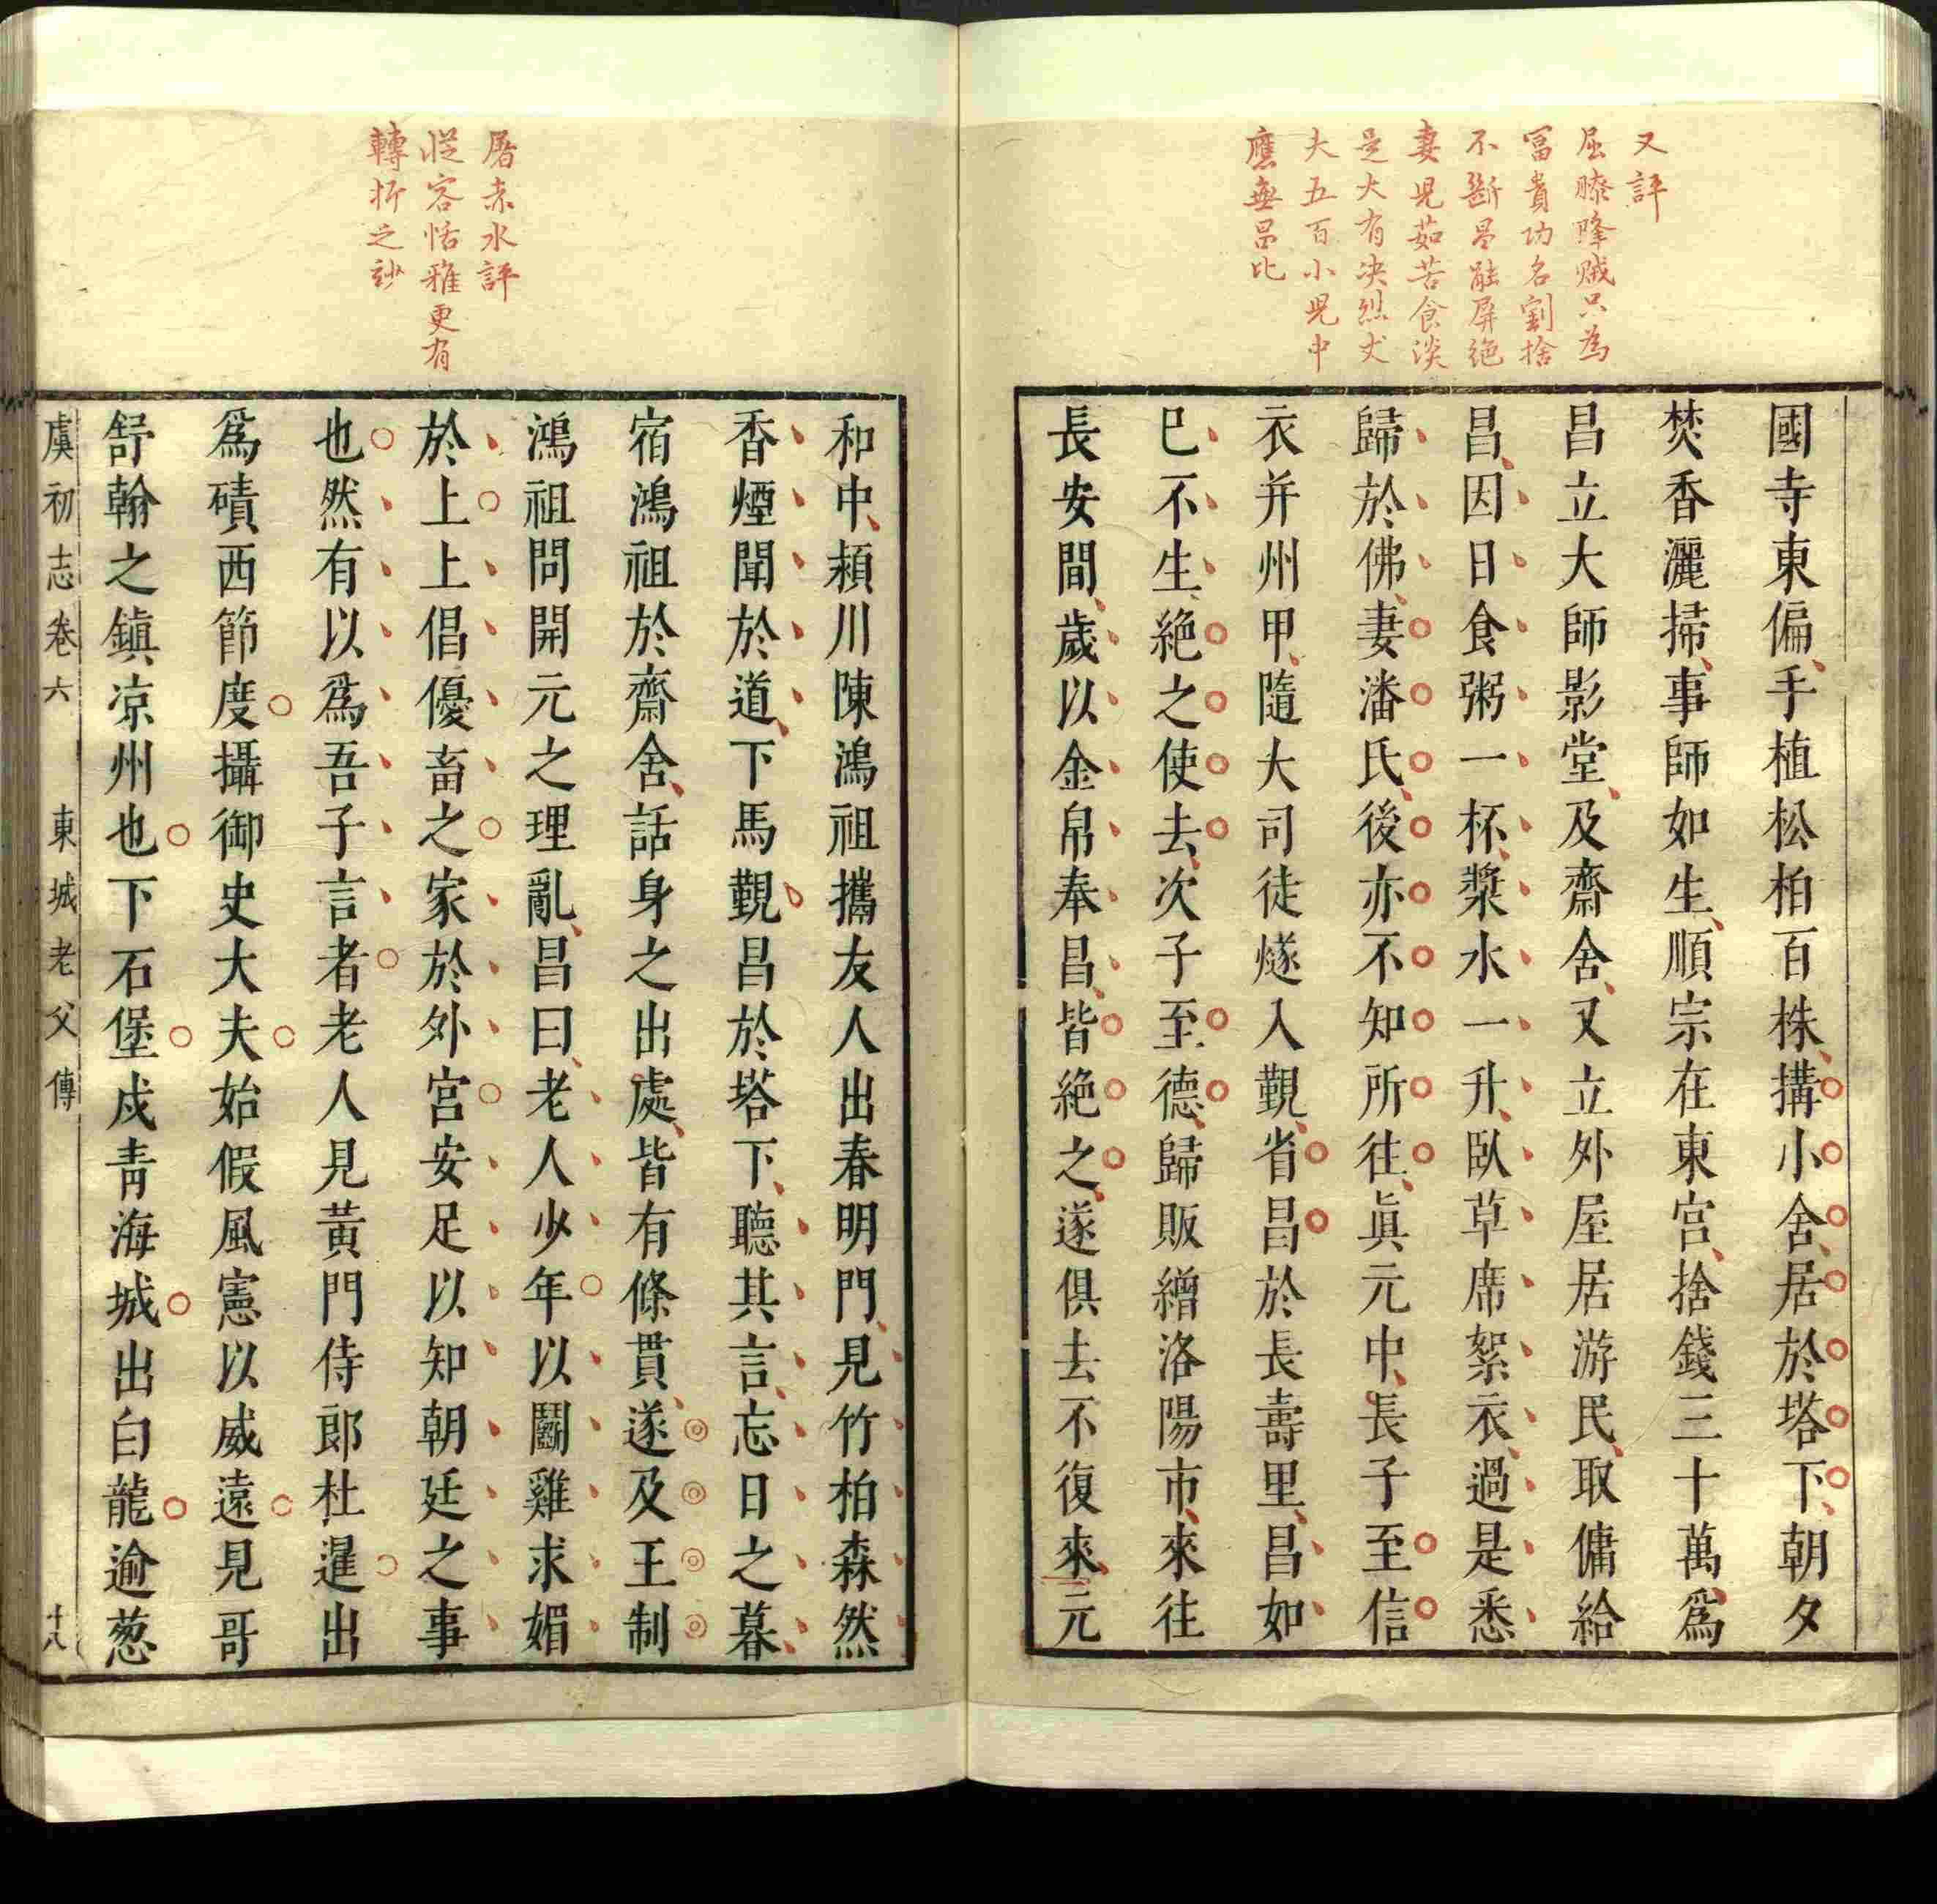 又評
屈膝降賊只為
冨貴功名割捨
不斷昌能屏絕
妻兒茹苦食淡
是大有决烈丈
夫五百小兒中
應無昌比
國寺東偏手植松柏百株搆小舍居於塔下朝夕
焚香灑掃事師如生順宗在東宫捨錢三十萬爲
昌立大師影堂及齋舍又立外屋居游民取傭給
昌因日食粥一杯漿水一升臥草席絮衣過是悉
歸於佛妻潘氏後亦不知所往眞元中長子至信
衣并州甲隨大司徒燧入覲省昌於長壽里昌如
巳不生絶之使去次子至德歸販繒洛陽市來往
長安間歲以金帛奉昌皆絶之遂俱去不復來元
屠赤水評
従容恬雅更有
轉折之玅
和中潁川陳鴻祖攜友人出春明門見竹柏森然
香煙聞於道下馬覲昌於塔下聽其言忘日之暮
宿鴻祖於齋舍話身之出處皆有條貫遂及王制
鴻祖問開元之理亂昌曰老人少年以鬭雞求媚
於上上倡優畜之家於外宫安足以知朝廷之事
也然有以爲吾子言者老人見黃門侍郎杜暹出
爲磧西節度攝御史大夫始假風憲以威遠見哥
舒翰之鎮凉州也下石堡戍青海城出白龍逾葱
虞初志卷六 東城老父傳 十八